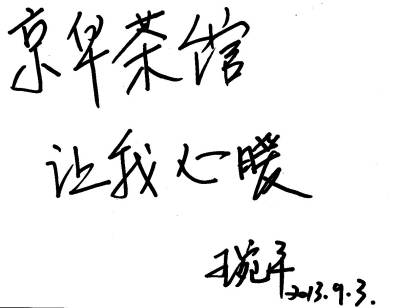 京华茶馆
让我心暖
王宛平 2013.9.3.